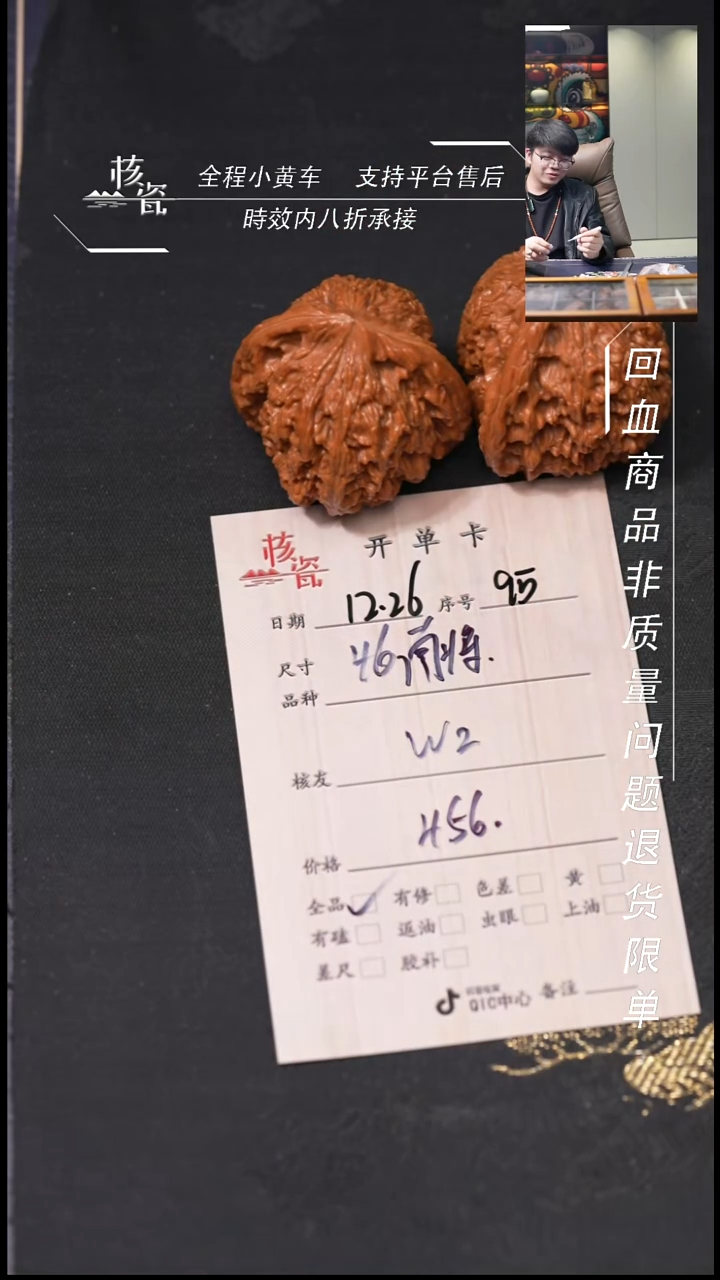 核瓷
全程小黄车 支持平台售后
時效内八折承接
回血商品非质量问题退货限单
核瓷
开单卡
日期 12.26 序号
尺寸 46南将.
品种
核友 W2
价格 456.
全品 有修 色差 黄
有磕 返油 虫眼 上油
差尺 胶补
QIC中心 备注